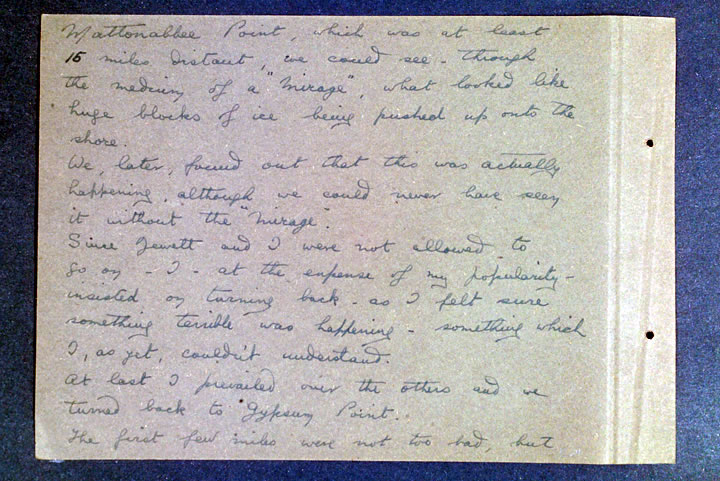 Mattonabbee Point, which was at least
15 miles distant, we could see - through
the medium of a "Mirage", what looked like
huge blocks of ice being pushed up onto the
shore.
We, later, found out that this was actually
happening, although we could never have seen
it without the "Mirage".
Since Jewett and I were not allowed to
go on - I - at the expense of my popularity -
insisted on turning back - as I felt sure
something terrible was happening - something which
I, as yet, couldn't understand.
At last I prevailed over the others and we
turned back to Gypsum Point.
The first few miles were not too bad, but